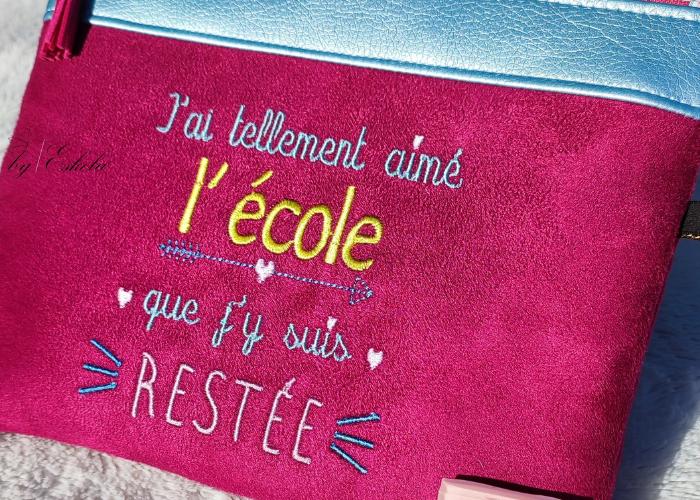 J'ai tellement aimé
l'école
que j'y suis
RESTÉE
by Eskela